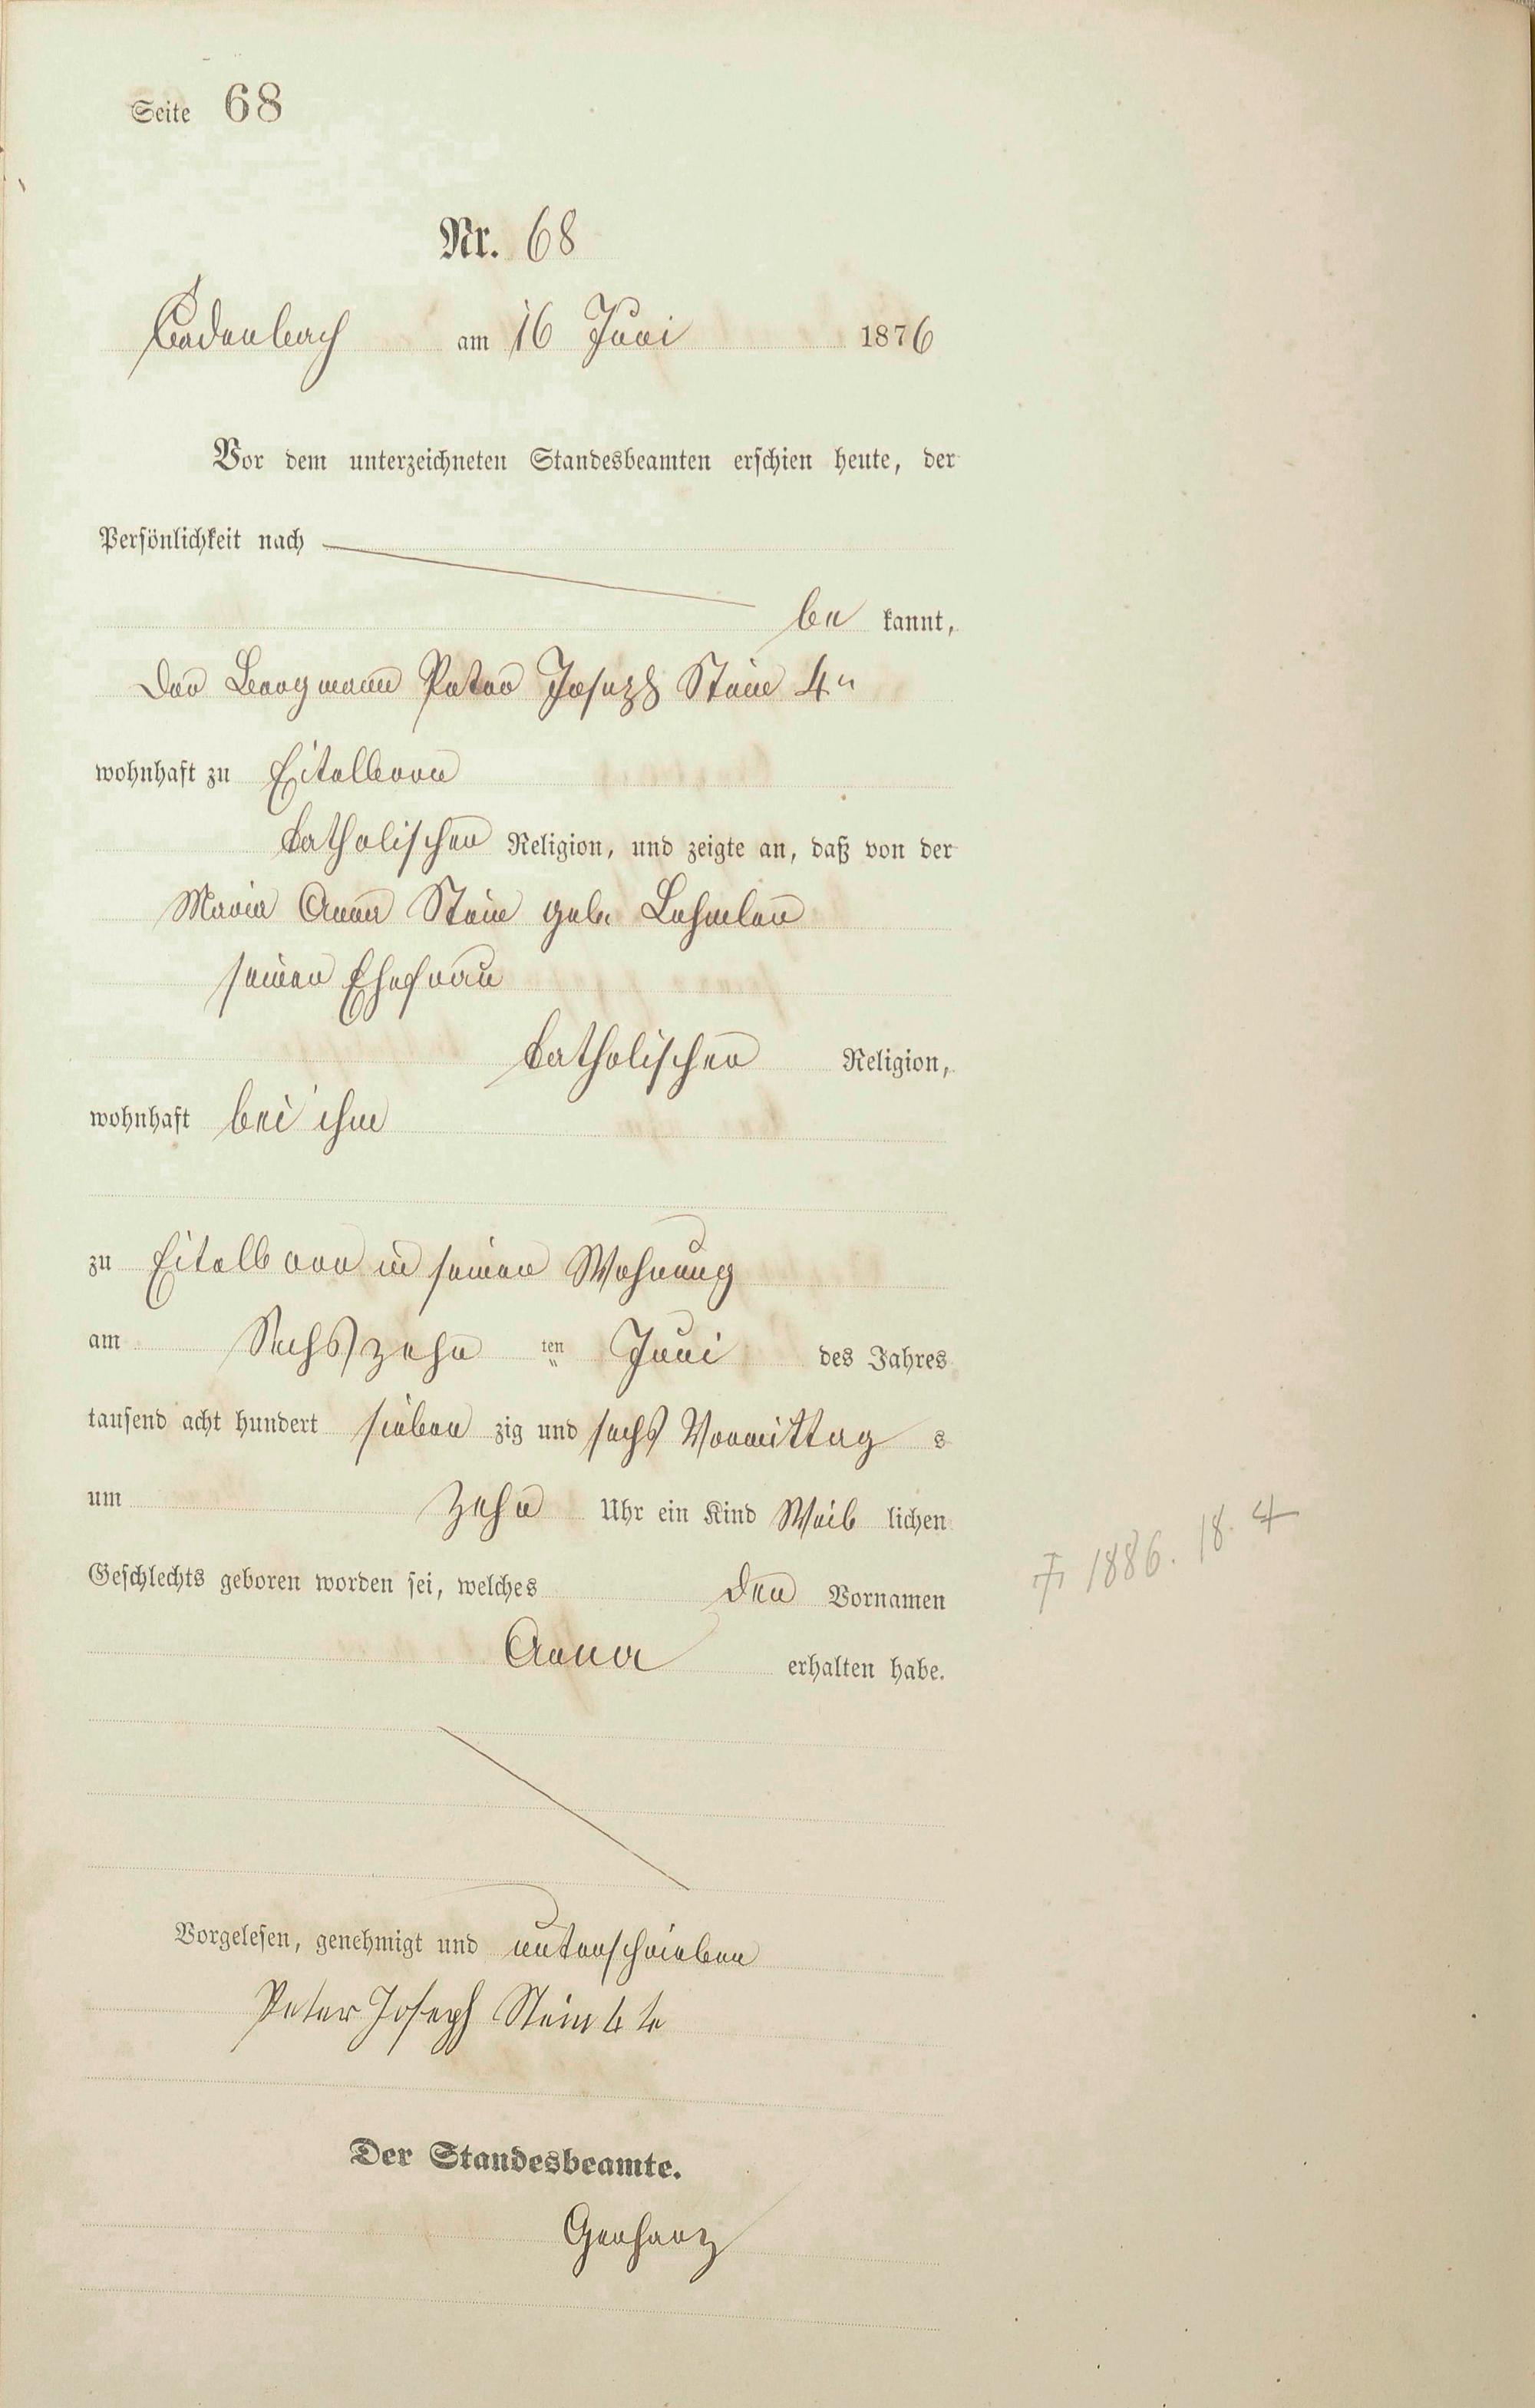 Seite 68
Nr. 68
Cadenbach am 16 Juni 1876
Vor dem unterzeichneten Standesbeamten erschien heute, der
Persönlichkeit nach
be kannt,
Der Bergmann Peter Joseph Stein 4r
wohnhaft zu Eitelborn
katholischer Religion, und zeigte an, daß von der
Maria Anna Stein geb. Lehmler
seiner Ehefrau
katholischer Religion,
wohnhaft bei ihm
zu Eitelborn in seiner Wohnung
am Sechszehn ten Juni des Jahres
tausend acht hundert sieben zig und sechs Vormittag s
um zehn Uhr ein Kind Weib lichen
Geschlechts geboren worden sei, welches den Vornamen
Anna erhalten habe.
† 1886. 18. 4
Vorgelesen, genehmigt und unterschrieben
Peter Joseph Stein 4 te
Der Standesbeamte.
Gerharz